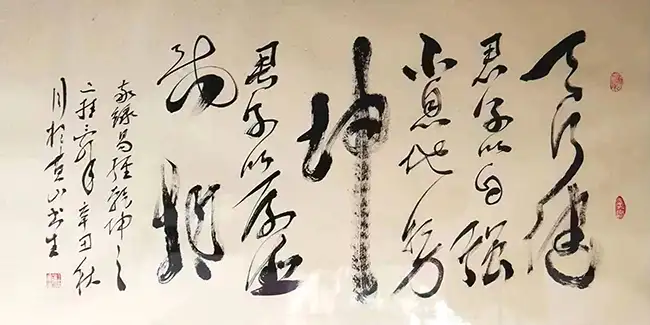 天行健
君子以自强
不息地势
坤
君子以厚德
载物
录易经乾坤之
二 辛丑秋
月 书